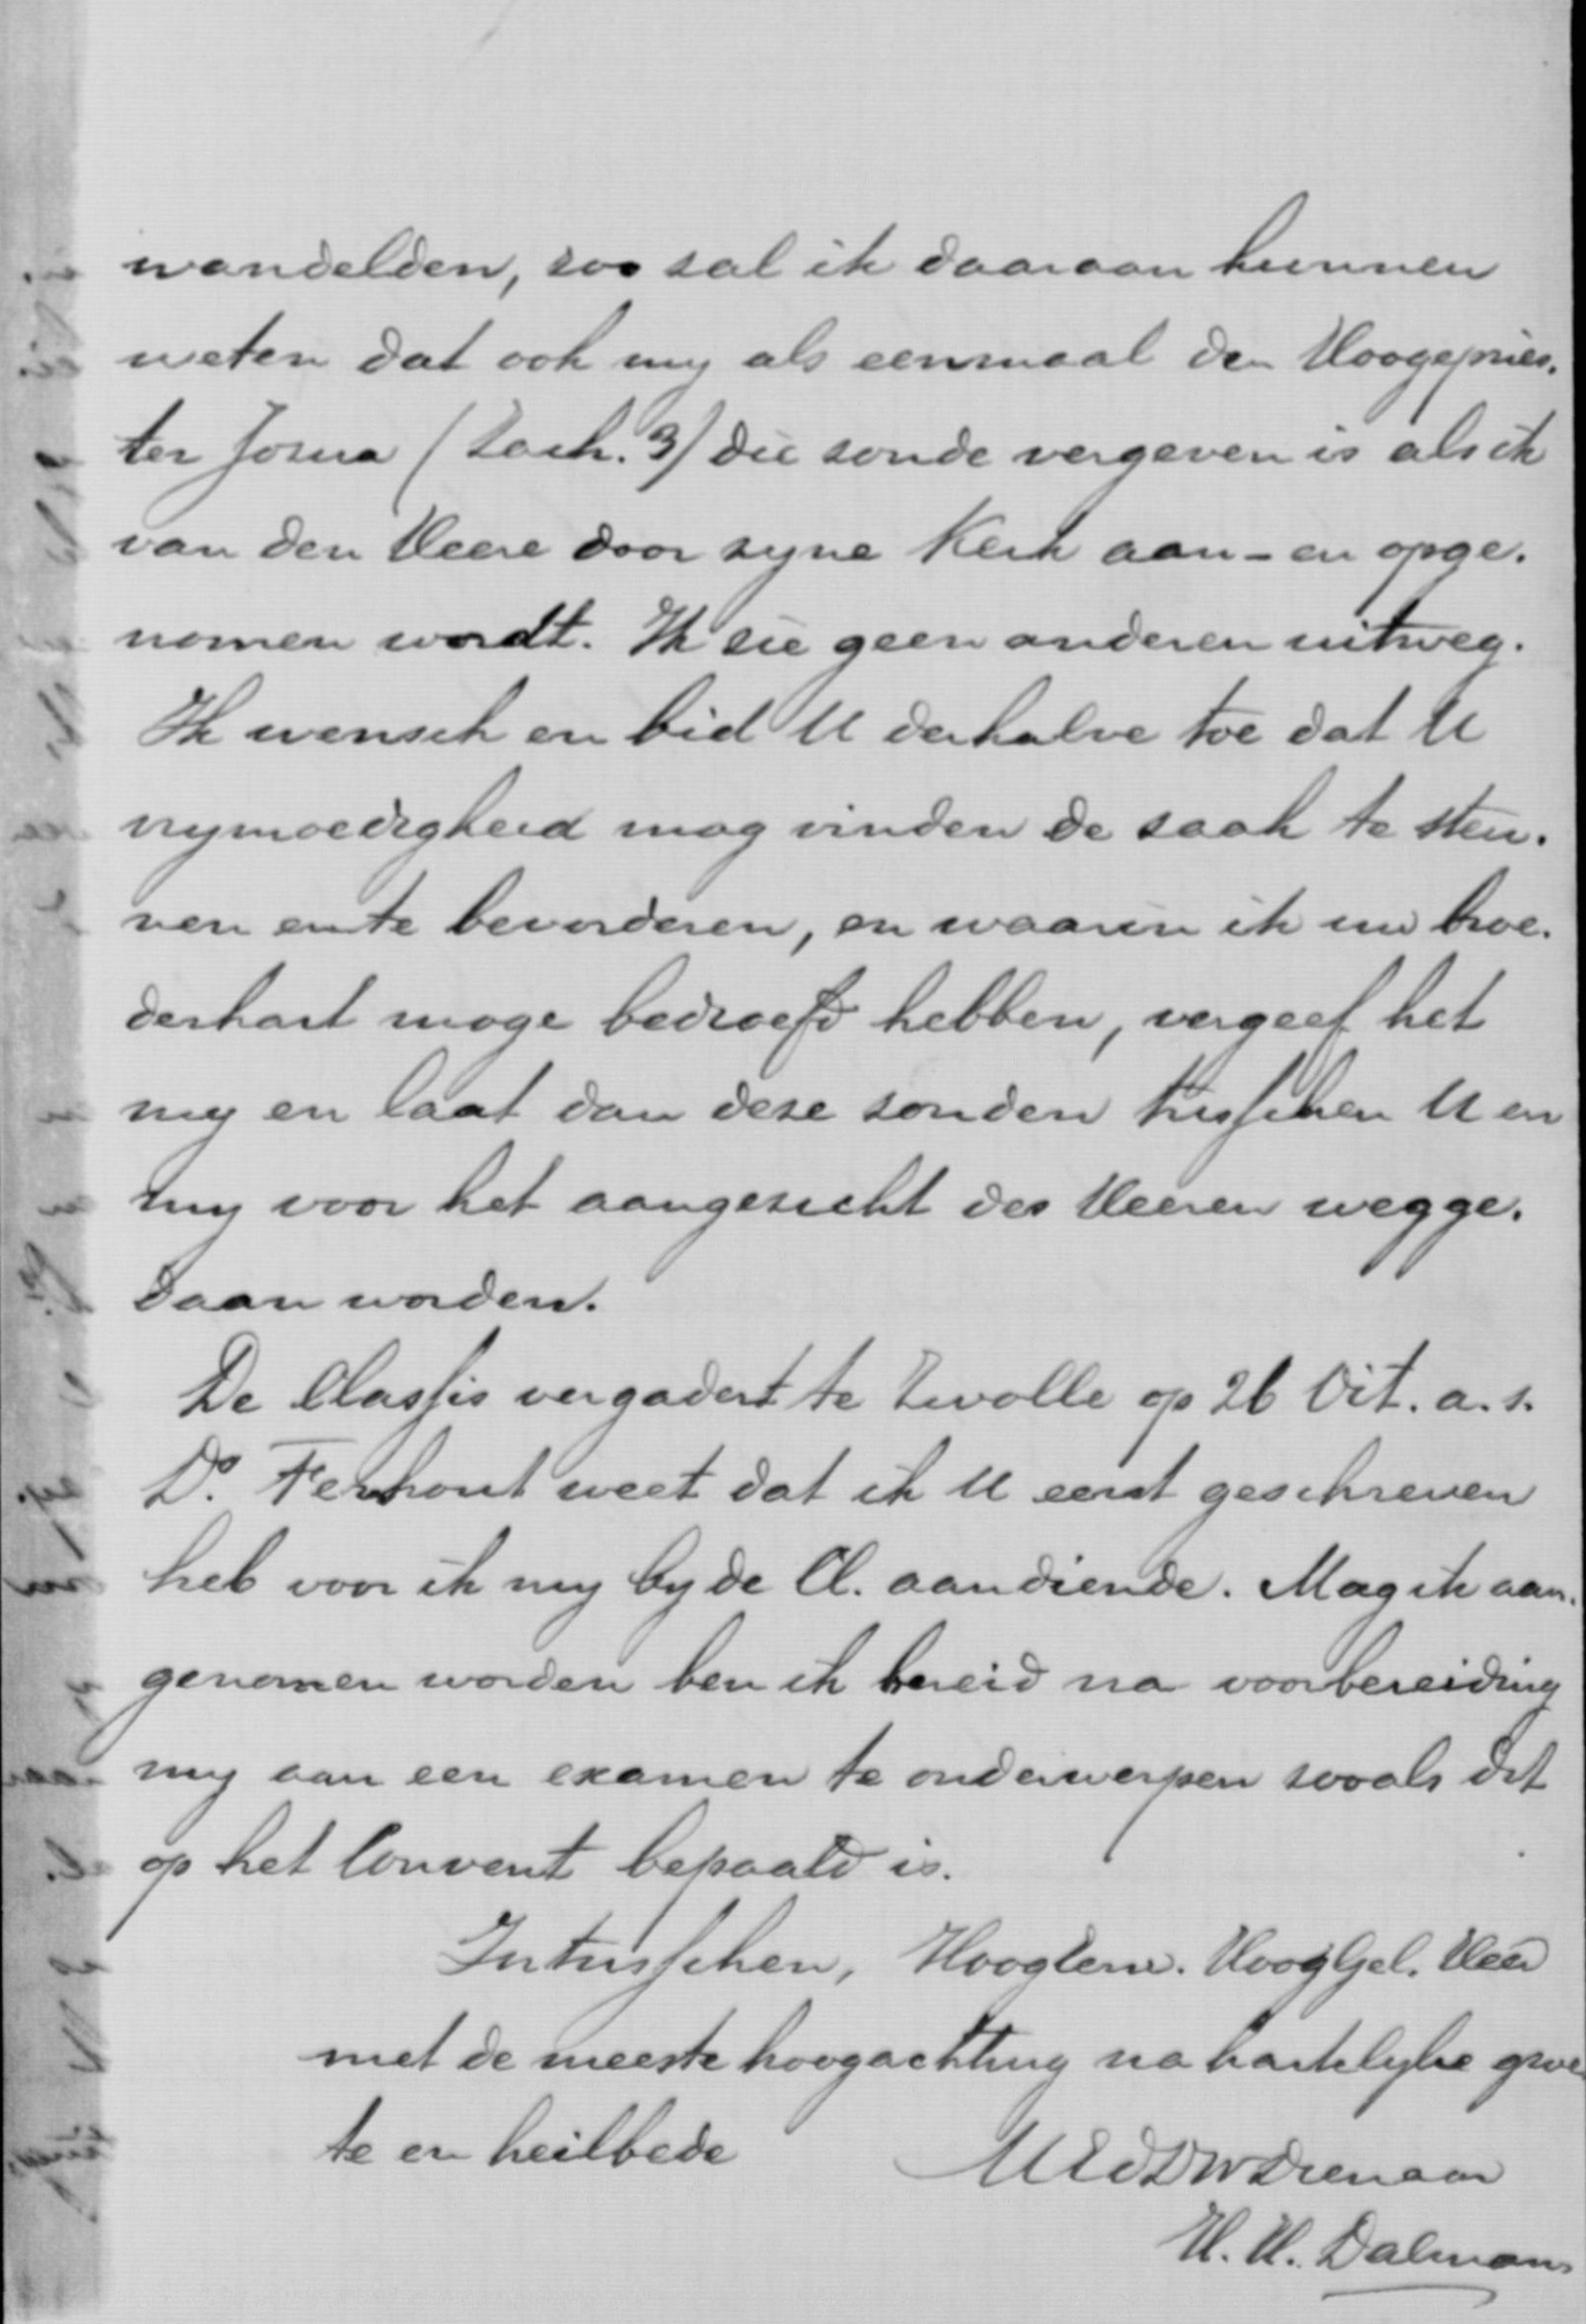 wandelden, zoo zal ik daaraan kunnen
weten dat ook my als eenmaal den Hoogepries-
ter Josua (Zach. 3) die zonde vergeven is als ik
van den Heere door zyne Kerk aan- en opge-
nomen wordt. Ik zie geen anderen uitweg.
Ik wensch en bid U derhalve toe dat U
vrymoedigheid mag vinden de zaak te steu-
nen en te bevorderen, en waarin ik uw broe-
derhart moge bedroefd hebben, vergeef het
my en laat dan deze zonden tusschen U en
my voor het aangezicht des Heeren wegge-
daan worden.
De Classis vergadert te Zwolle op 26 Oct. a.s.
Ds. Fernhout weet dat ik U eerst geschreven
heb voor ik my by de Cl. aandiende. Mag ik aan-
genomen worden ben ik bereid na voorbereiding
my aan een examen te onderwerpen zooals dit
op het Convent bepaald is.
Intusschen, Hoogeerw. HoogGel. Heer
met de meeste hoogachting na hartelyke groe-
te en heilbede
UEdDWDienaar
H. H. Dalmans